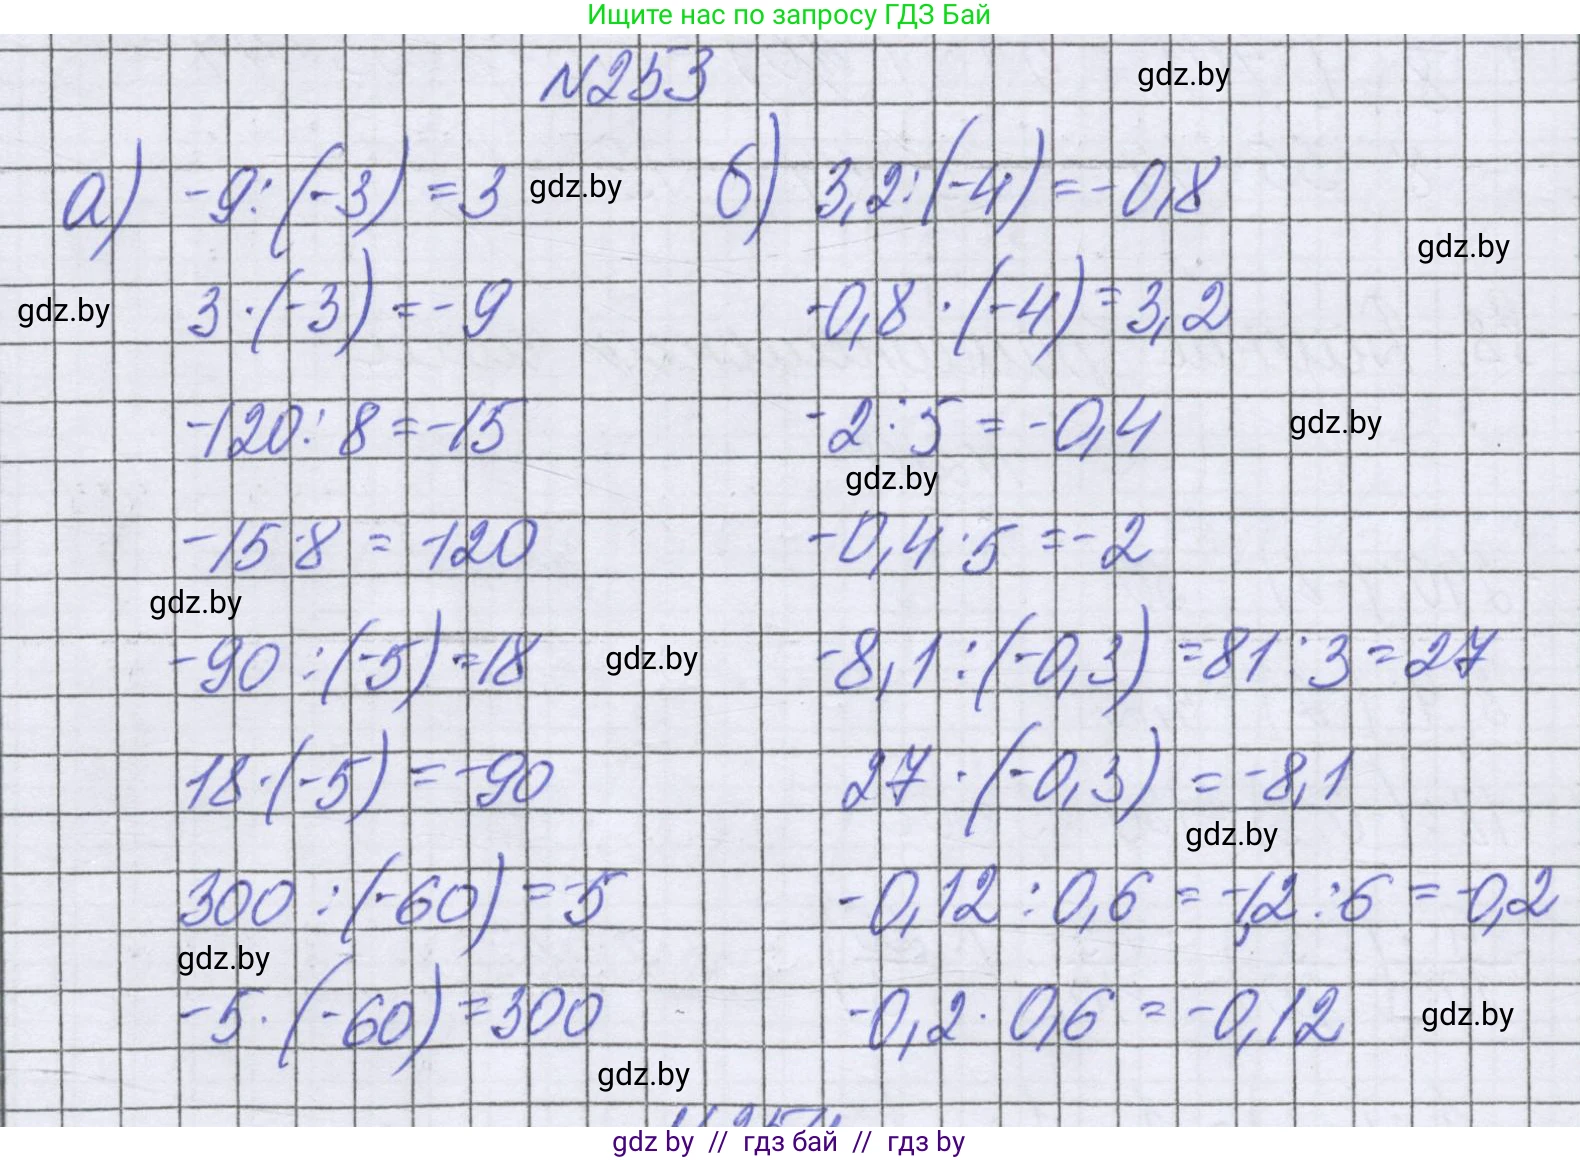 Ищите нас по запросу ГДЗ Бай
№253
gdz.by
а) -9:(-3) = 3
gdz.by
б) 3,2:(-4) = -0,8
gdz.by
gdz.by
3·(-3) = -9
-0,8·(-4) = 3,2
-120:8 = -15
-2:5 = -0,4
gdz.by
gdz.by
-15·8 = -120
-0,4·5 = -2
gdz.by
-90:(-5) = 18
gdz.by
-8,1:(-0,3) = 81:3 = 27
18·(-5) = -90
27·(-0,3) = -8,1
gdz.by
300:(-60) = -5
-0,12:0,6 = -1,2:6 = -0,2
gdz.by
-5·(-60) = 300
-0,2·0,6 = -0,12
gdz.by
gdz.by
gdz by // гдз бай // гдз by